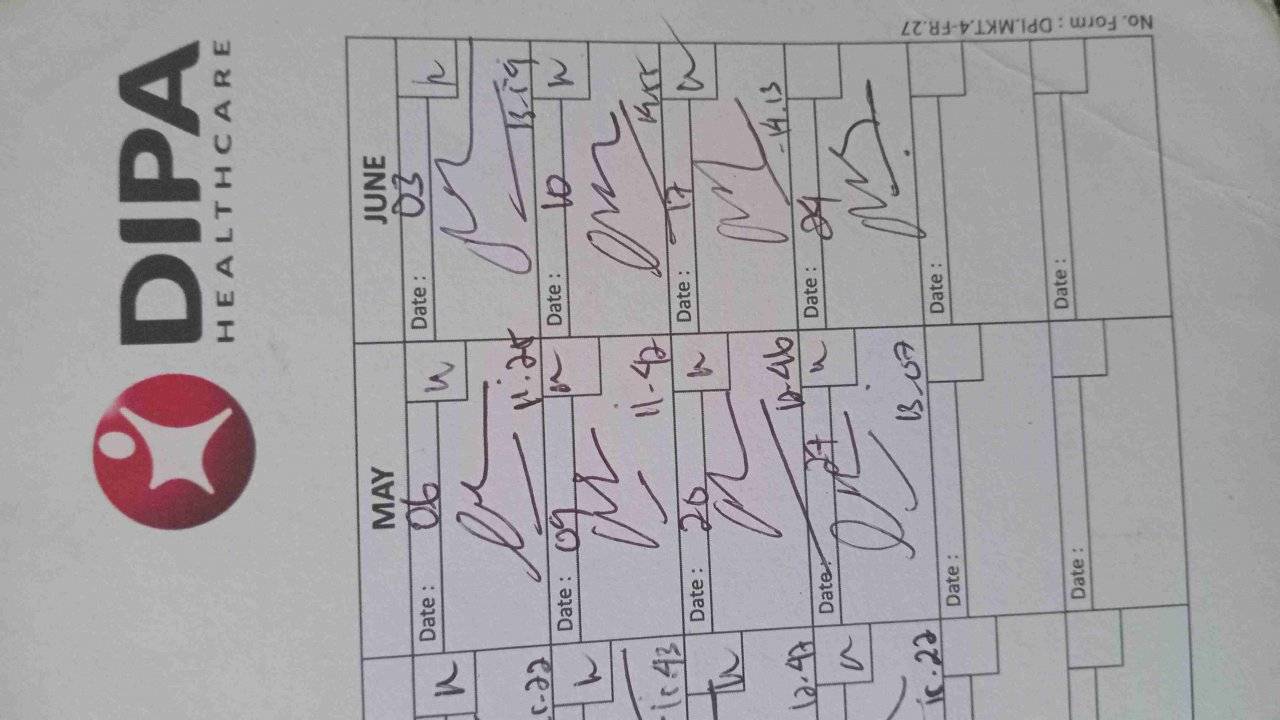 DIPA
HEALTHCARE
No. Form : DPI.MKT.4-FR.27
MAY
JUNE
Date : 06
n
11.25
Date : 03
n
13.59
Date : 09
n
11.42
Date : 10
n
14.55
Date : 20
n
12.46
Date : 17
n
14.13
Date : 27
n
13.07
Date : 24
Date :
Date :
Date :
Date :
n
n
n
12.42
n
15.22